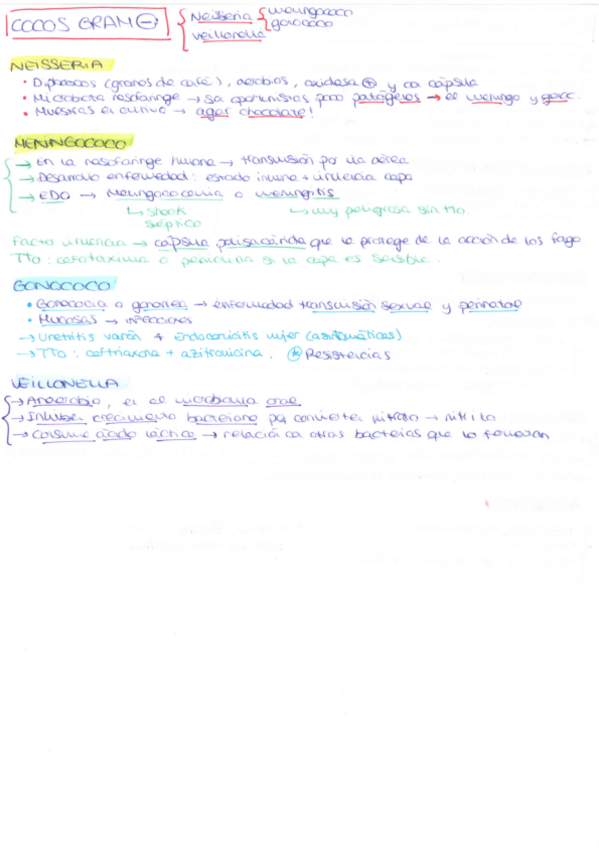 COCOS GRAM ⊖ { Neisseria { meningococo
gonococo
Veillonella
NEISSERIA
• Diplococos (granos de café), aerobios, oxidasa ⊕ y con cápsula
• Microbiota nasofaringe → son oportunistas pero patógenos → el meningo y gonc.
• Muestras en cultivo → agar chocolate!
MENINGOCOCO
→ En la nasofaringe humana → transmisión por vía aérea
→ Desarrollo enfermedad: estado inmune + virulencia cepa
→ EDO → Meningococemia o meningitis
↳ Shock séptico
↳ muy peligrosa sin tto
Factor virulencia → cápsula polisacárida que le protege de la acción de los fago
Tto: cefotaxima o penicilina si la cepa es sensible.
GONOCOCO
• Gonococia o gonorrea → enfermedad transmisión sexual y perinatal
• Mucosas → infecciones
→ Uretritis varón + Endocervicitis mujer (asintomáticas)
→ Tto: ceftriaxona + azitromicina. Resistencias
VEILLONELLA
→ Anaerobio, en el microbioma oral
→ Inhiben crecimiento bacteriano por convertir nitrato → nitrito
→ Consume ácido láctico → relación con otras bacterias que lo